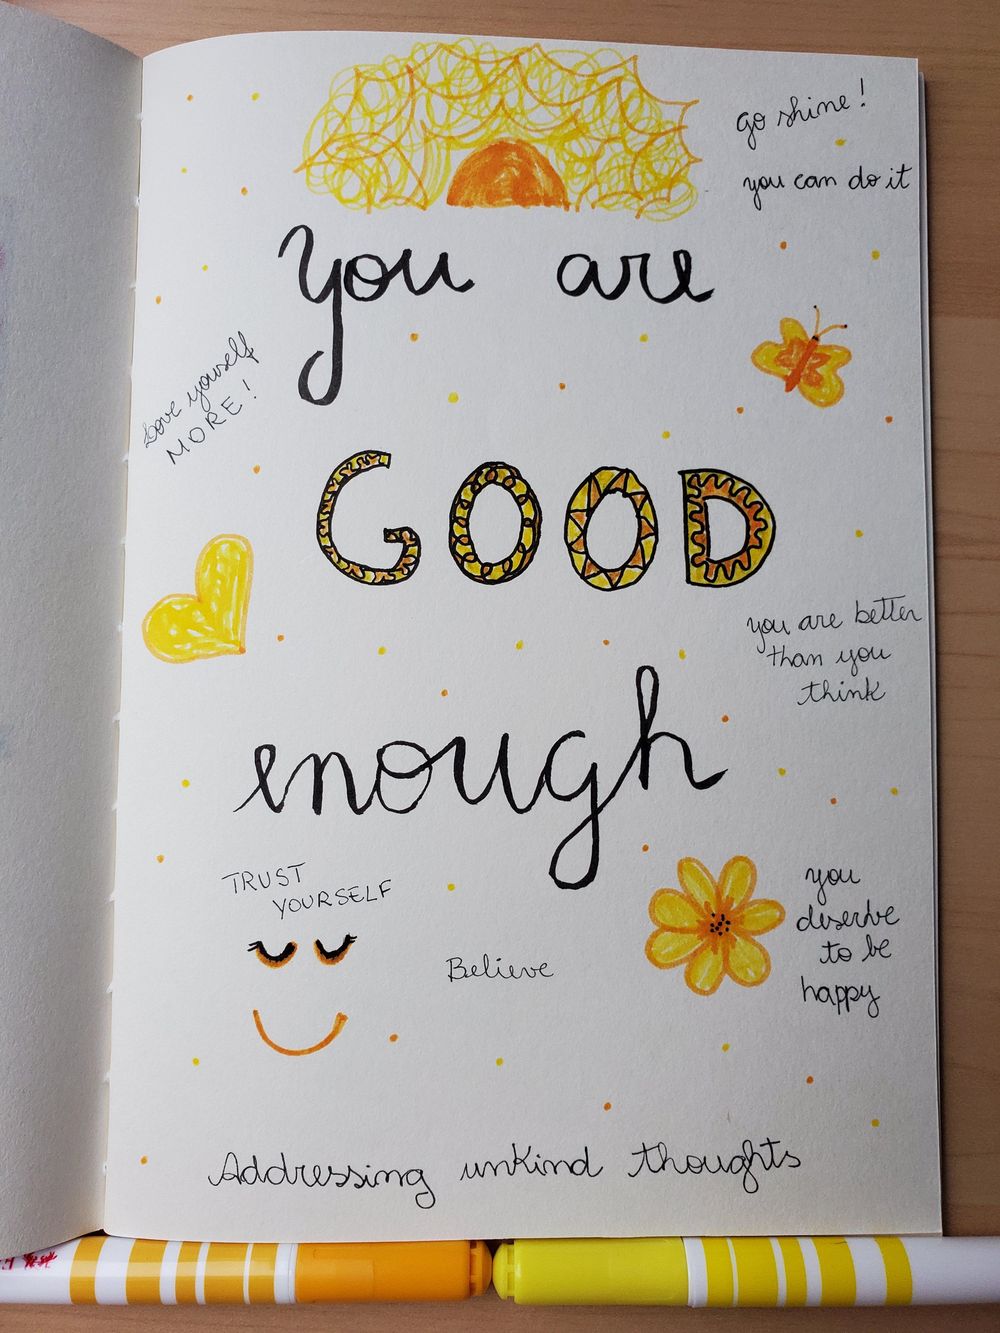 go shine!
you can do it
you are
Love yourself
MORE!
GOOD
you are better
than you
think
enough
TRUST
YOURSELF
Believe
you
deserve
to be
happy
Addressing unkind thoughts